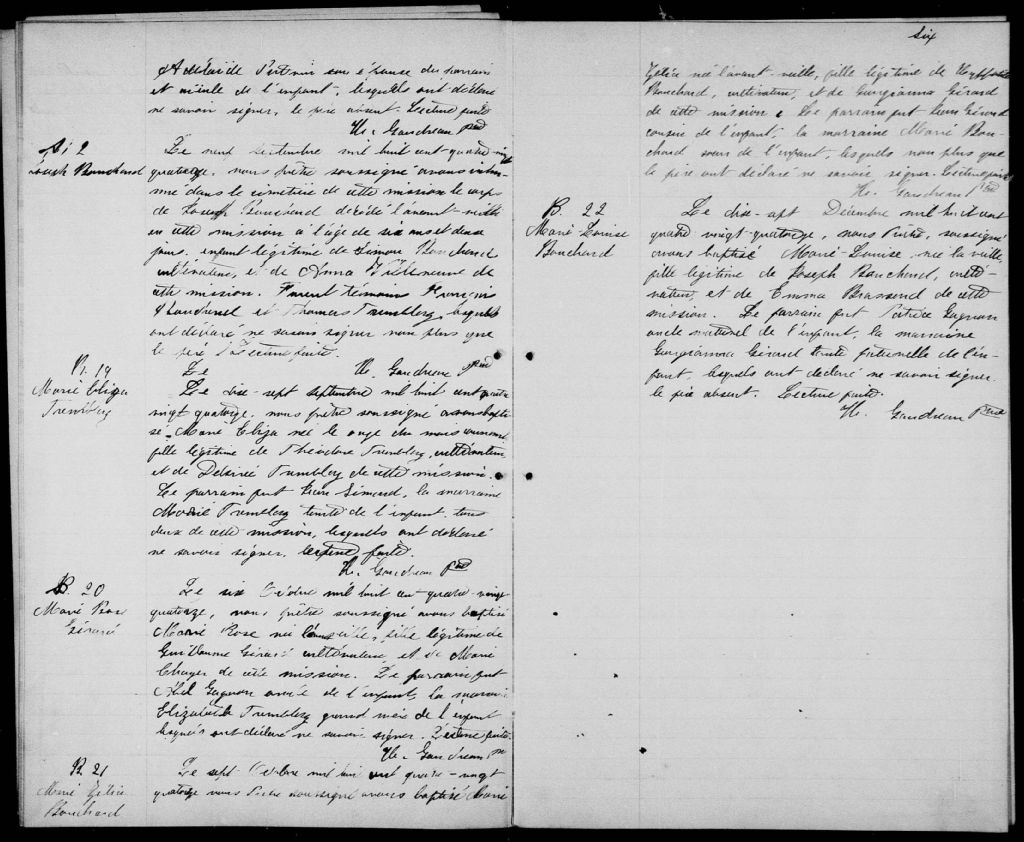 Adélaïde Potvin son épouse du parrain
et oncle de l'enfant, lesquels ont déclaré
ne savoir signer, le père absent. Lecture faite
H. Gaudreau Ptre
S. 2
Joseph Bouchard
Le neuf septembre mil huit cent quatre-vingt
quatorze, nous prêtre soussigné avons inhu-
mé dans le cimetière de cette mission le corps
de Joseph Bouchard décédé l'avant-veille
en cette mission à l'âge de six ans et deux
jours, enfant légitime de Simon Bouchard
cultivateur, et de Anna Villeneuve de
cette mission. Furent témoins François
Bouchard et Thomas Tremblay, lesquels
ont déclaré ne savoir signer non plus que
le père. Lecture faite.
Le H. Gaudreau Ptre
B. 19
Marie Eliza
Tremblay
Le dix-sept septembre mil huit cent quatre
vingt quatorze, nous prêtre soussigné avons bapti-
sé Marie Eliza née le onze du mois courant
fille légitime de Théodore Tremblay, cultivateur
et de Désirée Tremblay de cette mission.
Le parrain fut Simard, la marraine
Marie Tremblay tante de l'enfant, tous
deux de cette mission, lesquels ont déclaré
ne savoir signer. Lecture faite.
H. Gaudreau Ptre
B. 20
Marie Rose
Girard
Le six Octobre mil huit cent quatre-vingt
quatorze, nous prêtre soussigné avons baptisé
Marie Rose née, fille légitime de
Guillaume Girard cultivateur, et de Marie
de cette mission. Le parrain fut
Abel Gagnon de l'enfant, la marraine
Elizabeth Tremblay grand mère de l'enfant
lesquels ont déclaré ne savoir signer. Lecture faite
H. Gaudreau Ptre
B. 21
Marie Zélia
Bouchard
Le sept Octobre mil huit cent quatre-vingt
quatorze nous Prêtre soussigné avons baptisé Marie
Six
Zélia née l'avant-veille, fille légitime de Hyppolite
Bouchard, cultivateur, et de Georgianna Girard
de cette mission. Le parrain fut Girard
cousin de l'enfant, la marraine Marie Bou-
chard soeur de l'enfant, lesquels non plus que
le père ont déclaré ne savoir signer. Lecture faite
H. Gaudreau Ptre
B. 22
Marie-Louise
Bouchard
Le dix-sept Décembre mil huit cent
quatre vingt quatorze, nous Prêtre, soussigné
avons baptisé Marie-Louise, née la veille,
fille légitime de Joseph Bouchard, culti-
vateur, et de Emma Brassard de cette
mission. Le parrain fut Patrice Gagnon
oncle maternel de l'enfant, la marraine
Georgianna Girard tante paternelle de l'en-
fant, lesquels ont déclaré ne savoir signer.
le père absent. Lecture faite.
H. Gaudreau Ptre